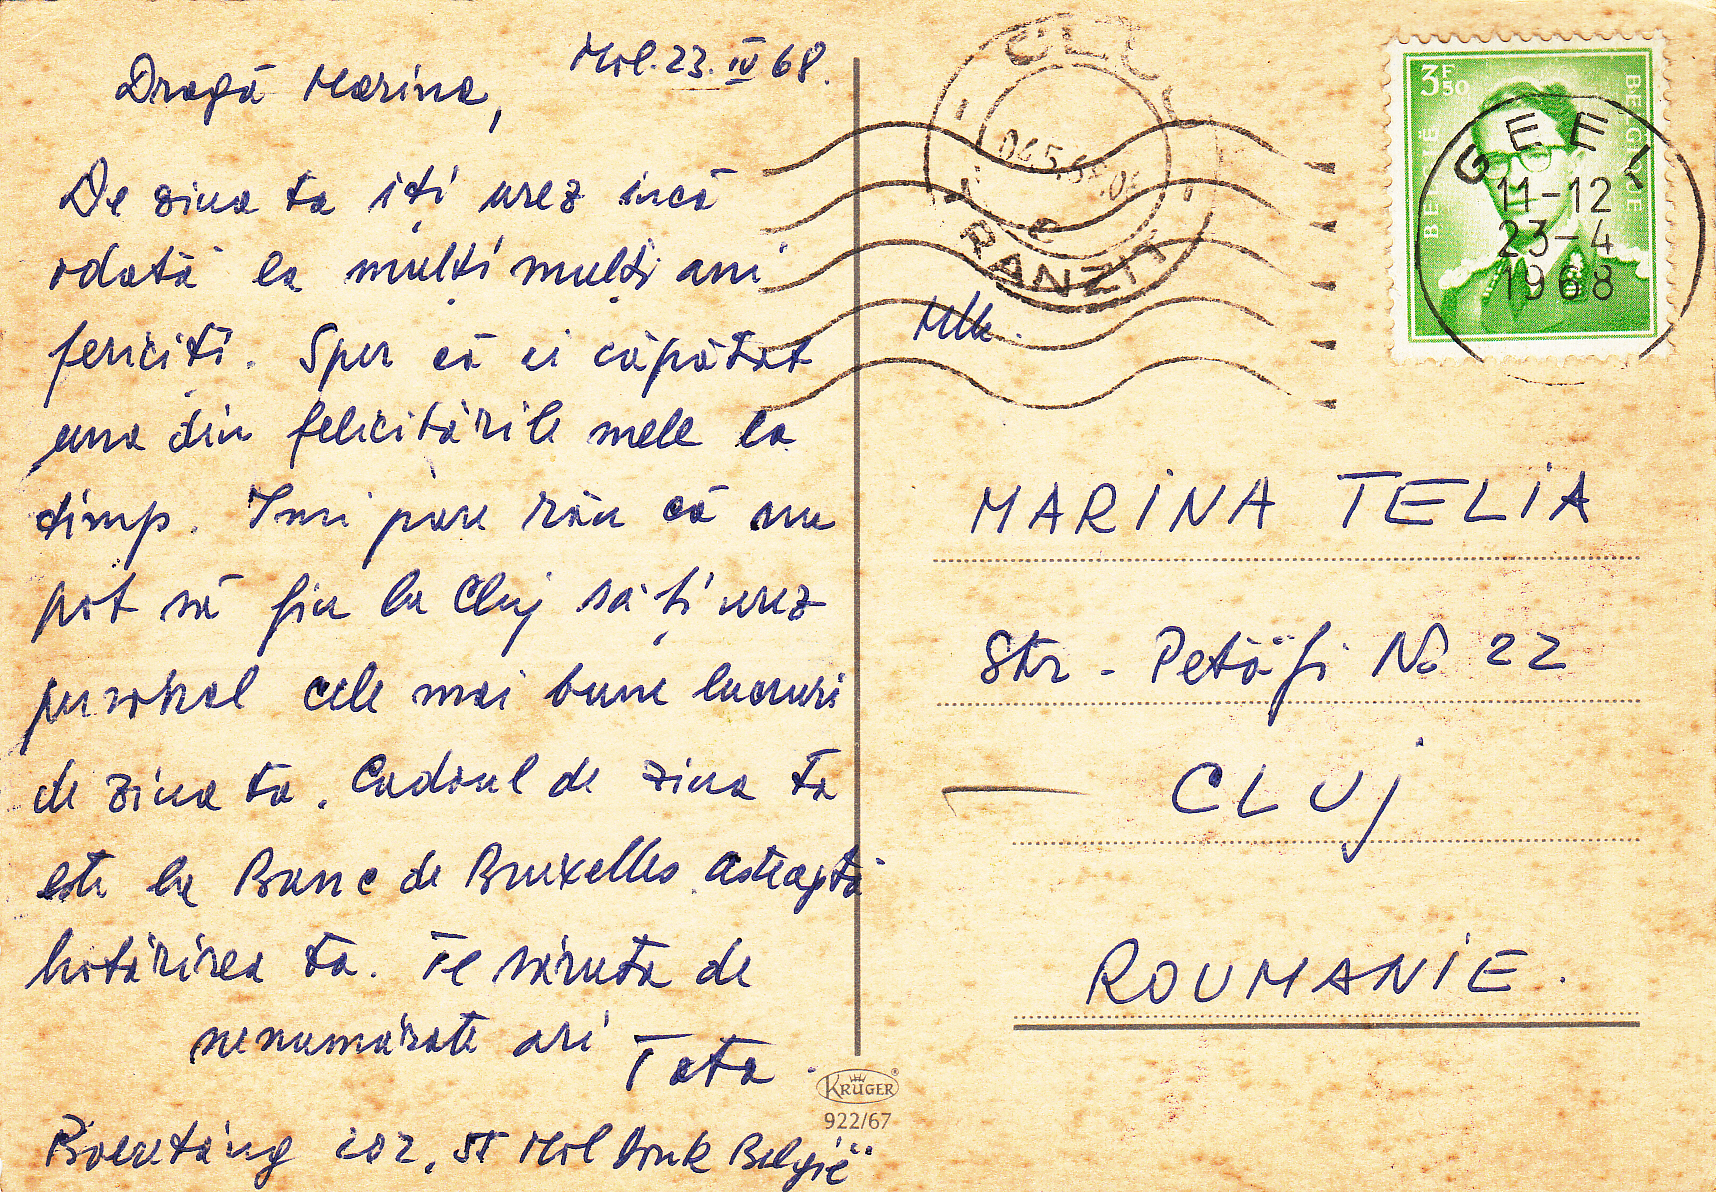 Mol. 23. IV 68.
Dragă Marina,
De ziua ta iți urez incă
odată la mulți mulți ani
fericiți. Sper că ei căpătat
una din felicitările mele la
timp. Imi pare rău că nu
pot să fiu la Cluj să ți urez
personal cele mai bune lucruri
de ziua ta. Cadoul de ziua ta
este la Banc de Bruxelles asteaptă
hotărirea ta. Te săruta de
nenumărate ori Tata.
102, Mol Donk België
3F50
BELGIË
BELGIQUE
GEEL
11-12
23-4
1968
CLUJ
RANZIT
Mlle.
MARINA TELIA
Str - Petöfi No 22
CLUj
ROUMANIE.
KRÜGER
922/67